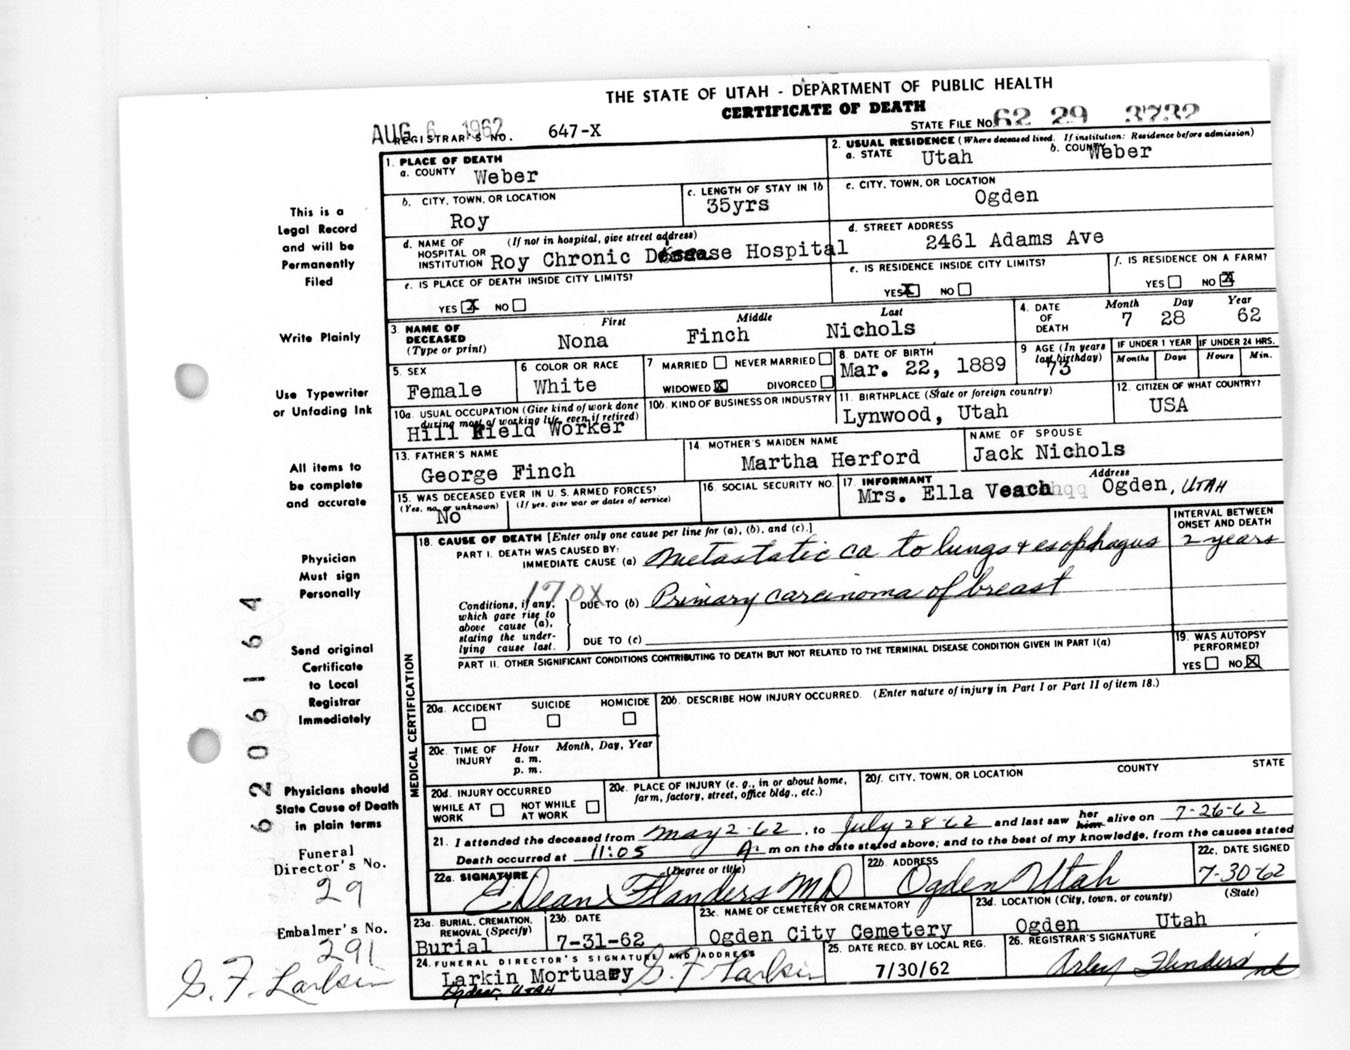 THE STATE OF UTAH - DEPARTMENT OF PUBLIC HEALTH
CERTIFICATE OF DEATH
AUG 6 1962
REGISTRAR'S NO. 647-X
STATE FILE NO. 62 29 3732
1. PLACE OF DEATH
a. COUNTY Weber
2. USUAL RESIDENCE (Where deceased lived. If institution: Residence before admission)
a. STATE Utah b. COUNTY Weber
b. CITY, TOWN, OR LOCATION
Roy
c. LENGTH OF STAY IN 1b
35yrs
c. CITY, TOWN, OR LOCATION
Ogden
d. NAME OF HOSPITAL OR INSTITUTION (If not in hospital, give street address)
Roy Chronic Disease Hospital
d. STREET ADDRESS
2461 Adams Ave
e. IS PLACE OF DEATH INSIDE CITY LIMITS?
YES X NO
e. IS RESIDENCE INSIDE CITY LIMITS?
YES X NO
f. IS RESIDENCE ON A FARM?
YES NO X
3. NAME OF DECEASED (Type or print)
First Middle Last
Nona Finch Nichols
4. DATE OF DEATH
Month Day Year
7 28 62
5. SEX
Female
6 COLOR OR RACE
White
7 MARRIED NEVER MARRIED
WIDOWED X DIVORCED
8. DATE OF BIRTH
Mar. 22, 1889
9 AGE (In years last birthday)
73
IF UNDER 1 YEAR
Months Days
IF UNDER 24 HRS.
Hours Min.
10a. USUAL OCCUPATION (Give kind of work done during most of working life, even if retired)
Hill Field Worker
10b. KIND OF BUSINESS OR INDUSTRY
11. BIRTHPLACE (State or foreign country)
Lynwood, Utah
12. CITIZEN OF WHAT COUNTRY?
USA
13. FATHER'S NAME
George Finch
14 MOTHER'S MAIDEN NAME
Martha Herford
NAME OF SPOUSE
Jack Nichols
15. WAS DECEASED EVER IN U. S. ARMED FORCES?
(Yes, no, or unknown) (If yes, give war or dates of service)
No
16. SOCIAL SECURITY NO.
17. INFORMANT Address
Mrs. Ella Veach Ogden, UTAH
18. CAUSE OF DEATH [Enter only one cause per line for (a), (b), and (c).]
INTERVAL BETWEEN ONSET AND DEATH
PART I. DEATH WAS CAUSED BY:
IMMEDIATE CAUSE (a) Metastatic ca to lungs + esophagus 2 years
170X
Conditions, if any, which gave rise to above cause (a), stating the underlying cause last.
DUE TO (b) Primary carcinoma of breast
DUE TO (c)
PART II. OTHER SIGNIFICANT CONDITIONS CONTRIBUTING TO DEATH BUT NOT RELATED TO THE TERMINAL DISEASE CONDITION GIVEN IN PART I(a)
19. WAS AUTOPSY PERFORMED?
YES NO X
MEDICAL CERTIFICATION
20a. ACCIDENT SUICIDE HOMICIDE
20b. DESCRIBE HOW INJURY OCCURRED. (Enter nature of injury in Part I or Part II of item 18.)
20c. TIME OF INJURY Hour Month, Day, Year
a. m.
p. m.
20d. INJURY OCCURRED
WHILE AT WORK NOT WHILE AT WORK
20e. PLACE OF INJURY (e. g., in or about home, farm, factory, street, office bldg., etc.)
20f. CITY, TOWN, OR LOCATION COUNTY STATE
21. I attended the deceased from May 2-62, to July 28-62 and last saw her him alive on 7-26-62
Death occurred at 11:05 A. m on the date stated above; and to the best of my knowledge, from the causes stated
22a. SIGNATURE (Degree or title)
E Dean Flanders MD
22b. ADDRESS
Ogden Utah
22c. DATE SIGNED
7-30-62
23a. BURIAL, CREMATION, REMOVAL (Specify)
Burial
23b. DATE
7-31-62
23c. NAME OF CEMETERY OR CREMATORY
Ogden City Cemetery
23d. LOCATION (City, town, or county) (State)
Ogden Utah
24. FUNERAL DIRECTOR'S SIGNATURE AND ADDRESS
Larkin Mortuary G. F. Larkin
Ogden, UTAH
25. DATE RECD. BY LOCAL REG.
7/30/62
26. REGISTRAR'S SIGNATURE
This is a
Legal Record
and will be
Permanently
Filed
Write Plainly
Use Typewriter
or Unfading Ink
All items to
be complete
and accurate
Physician
Must sign
Personally
Send original
Certificate
to Local
Registrar
Immediately
Physicians should
State Cause of Death
in plain terms
Funeral
Director's No.
29
Embalmer's No.
291
G. F. Larkin
6206164